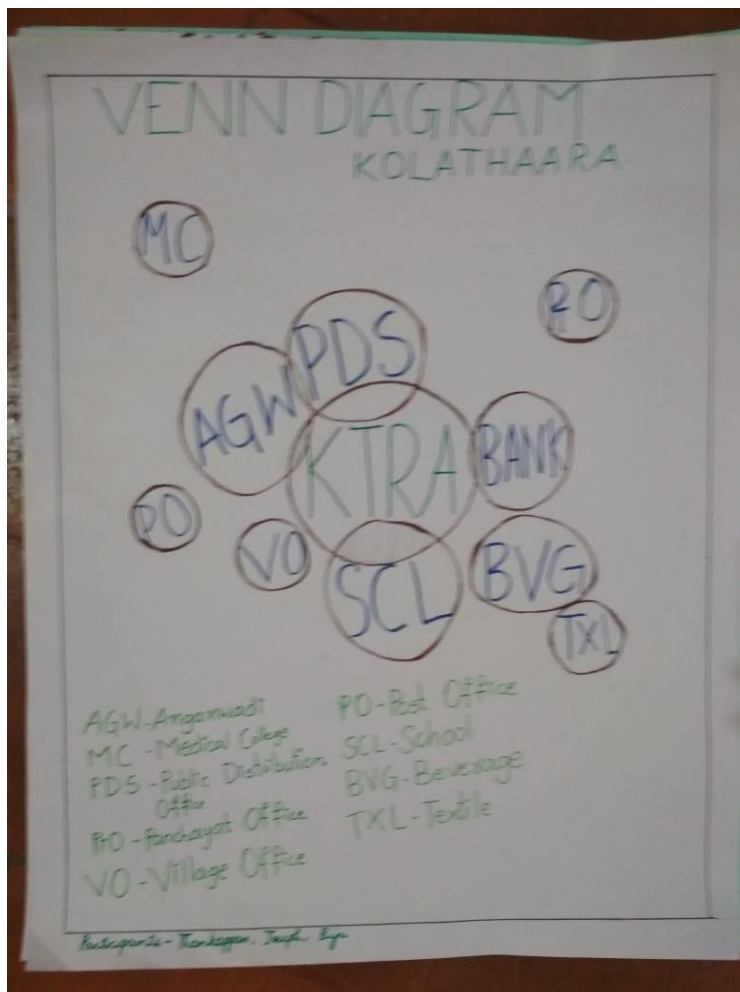 VENN DIAGRAM
KOLATHAARA
MC
PDS
AGW
KTRA
BANK
PO
VO
SCL
BVG
TXL
AGW-Anganwadi
MC - Medical College
PDS - Public Distribution
Office
PtO - Panchayat Office
VO - Village Office
PO - Post Office
SCL - School
BVG - Beverage
TXL - Textile
Participants - Thankappan, Joseph,